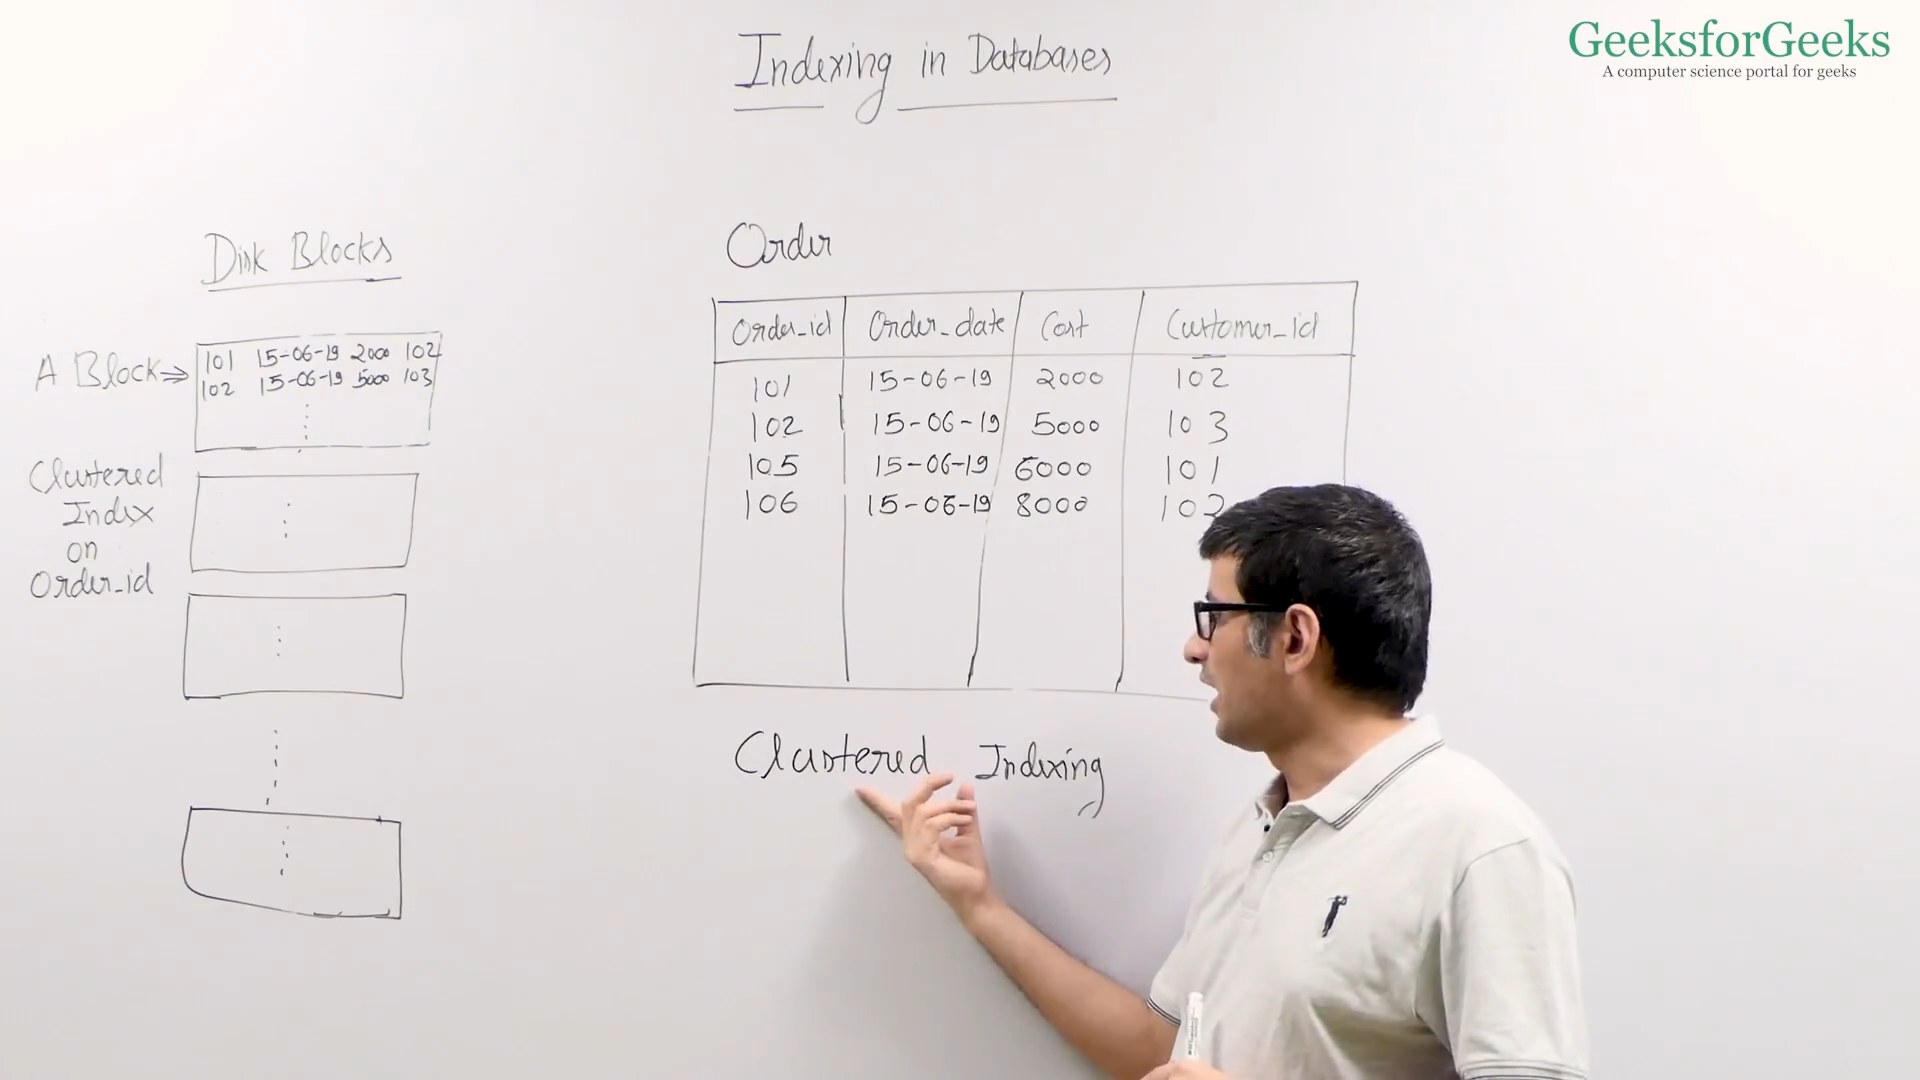 GeeksforGeeks
A computer science portal for geeks
Indexing in Databases
Disk Blocks
A Block
101 15-06-19 2000 102
102 15-06-19 5000 103
Clustered
Index
on
Order_id
Order
Order_id Order_date Cost Customer_id
101 15-06-19 2000 102
102 15-06-19 5000 103
105 15-06-19 6000 101
106 15-06-19 8000 102
Clustered Indexing